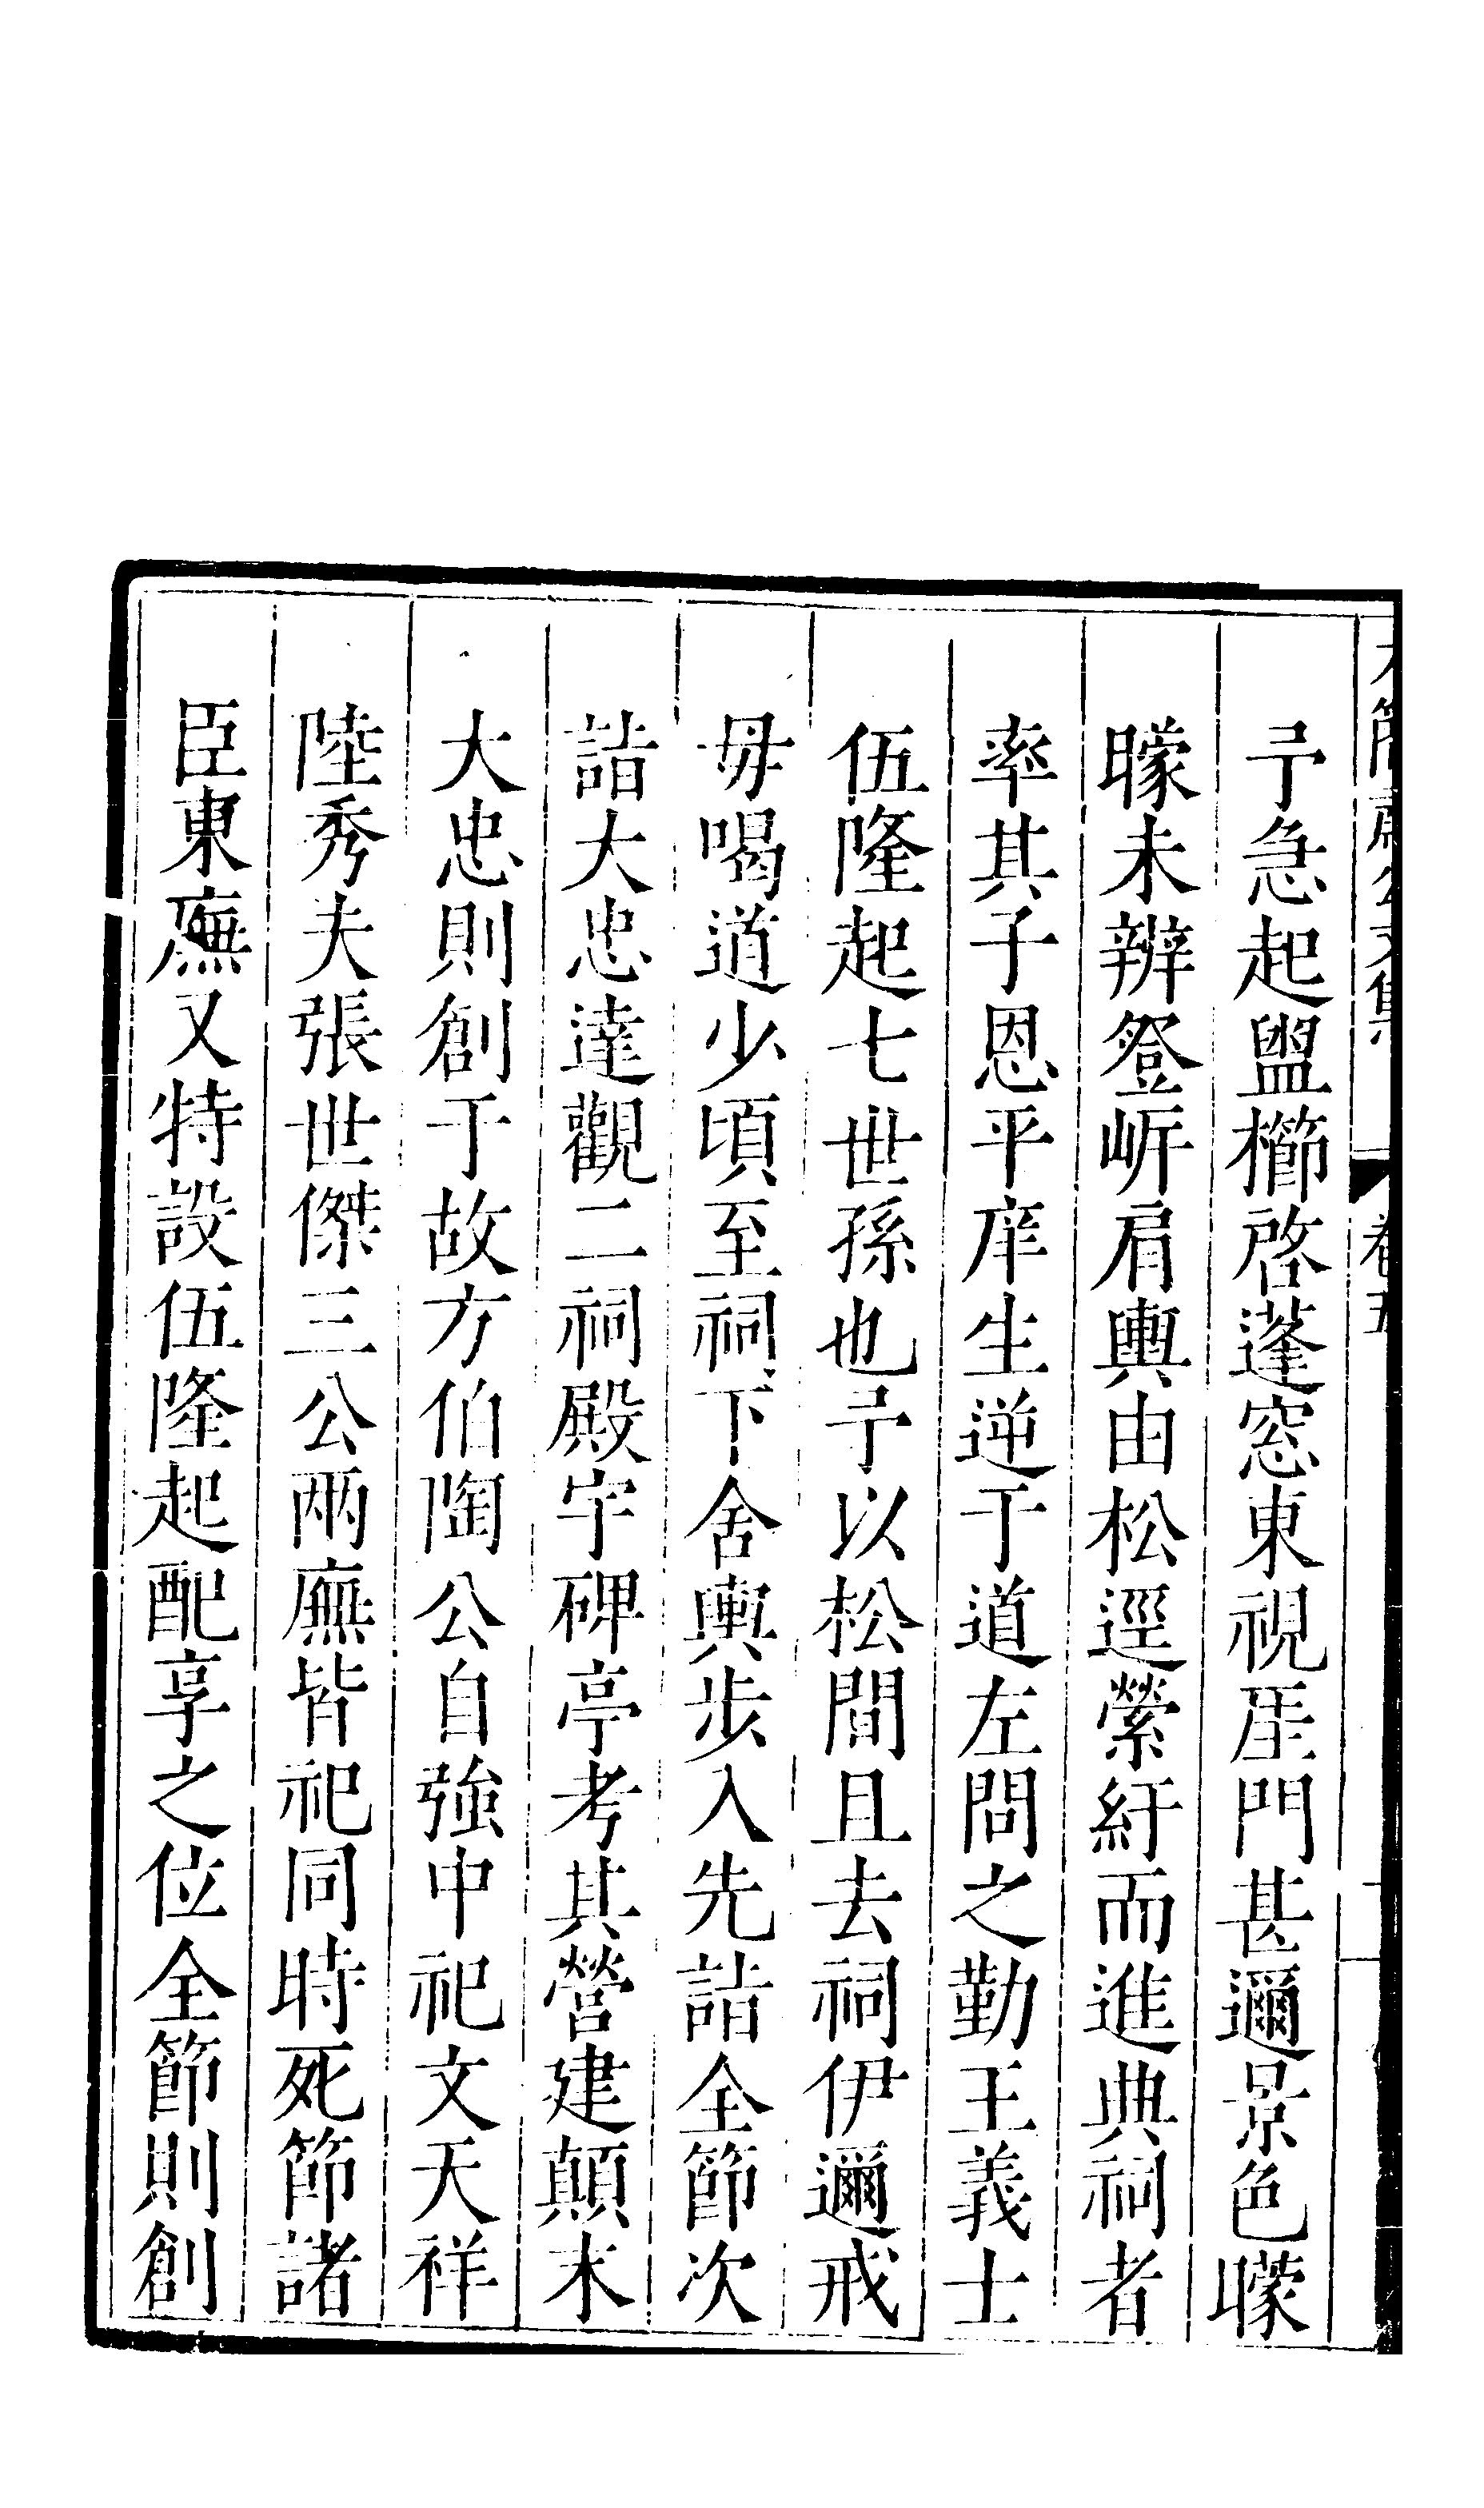 公文集
卷五
予急起盥櫛啓蓬窓東視厓門甚邇景色曚
曚未辨登岍肩輿由松逕縈紆而進典祠者
率其子恩平庠生逆于道左問之勤王義士
伍隆起七世孫也予以松間且去祠伊邇戒
毋喝道少頃至祠下舍輿步入先詣全節次
詣大忠達觀二祠殿宇碑亭考其營建顛末
大忠則創于故方伯陶公自強中祀文天祥
陸秀夫張世傑三公兩廡皆祀同時死節諸
臣東廡又特設伍隆起配享之位全節則創